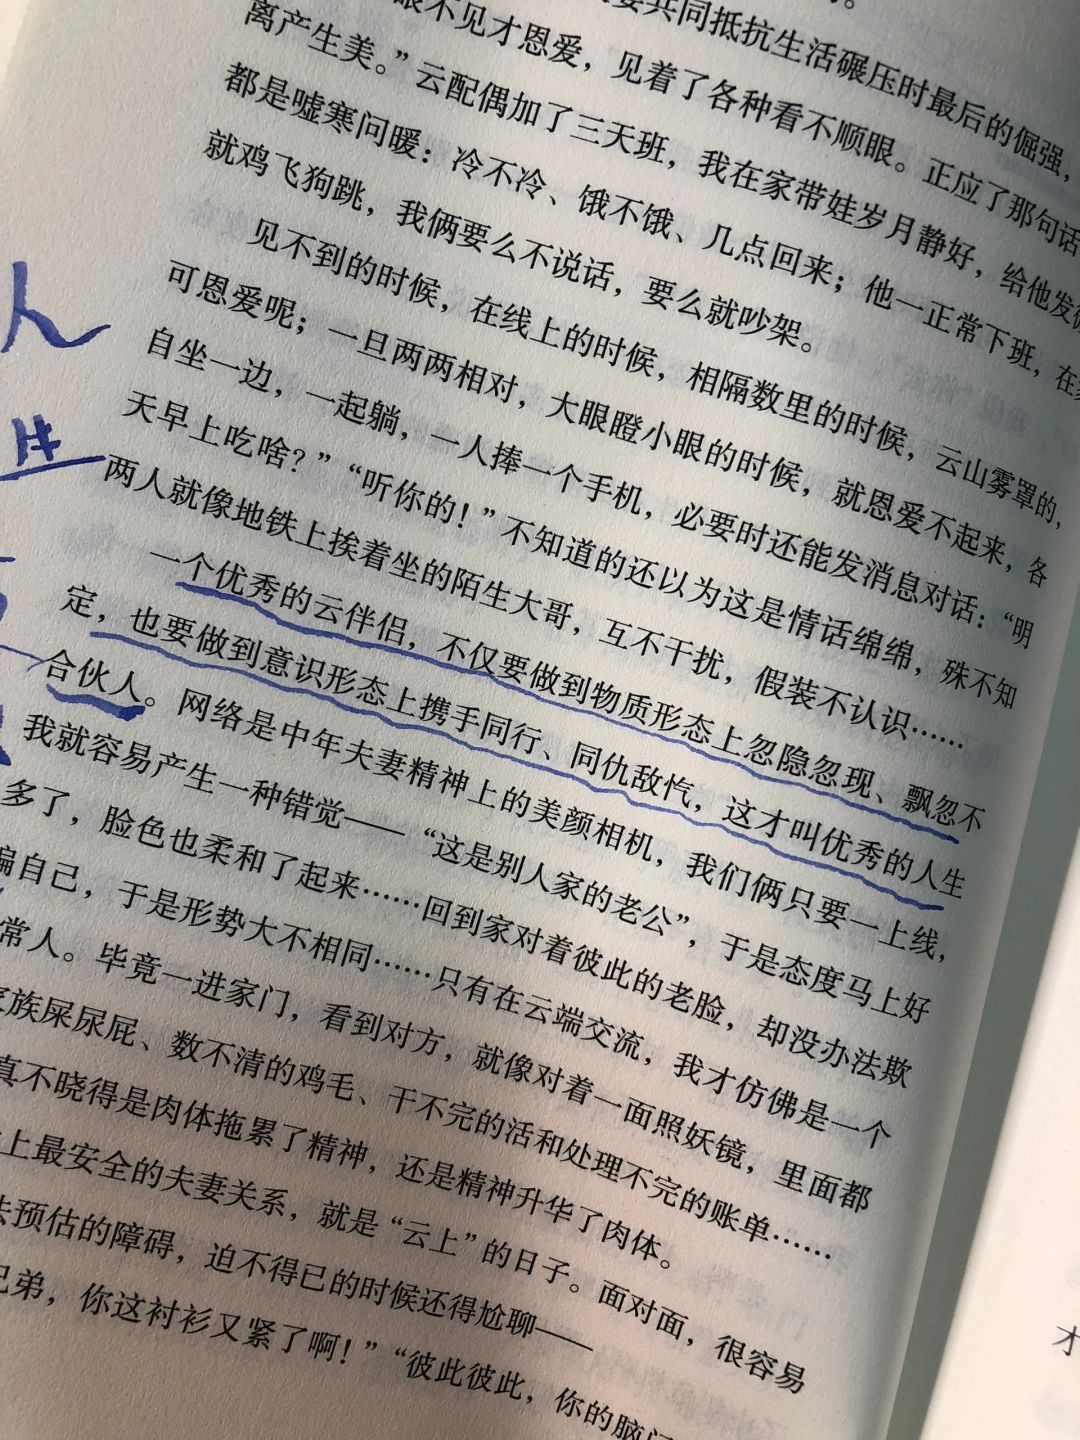 共同抵抗生活碾压时最后的倔强，
眼不见才恩爱，见着了各种看不顺眼。正应了那句话
离产生美。”云配偶加了三天班，我在家带娃岁月静好，给他发微
都是嘘寒问暖：冷不冷、饿不饿、几点回来；他一正常下班，在
就鸡飞狗跳，我俩要么不说话，要么就吵架。
见不到的时候，在线上的时候，相隔数里的时候，云山雾罩的，
可恩爱呢；一旦两两相对，大眼瞪小眼的时候，就恩爱不起来，各
自坐一边，一起躺，一人捧一个手机，必要时还能发消息对话：“明
天早上吃啥？”“听你的！”不知道的还以为这是情话绵绵，殊不知
两人就像地铁上挨着坐的陌生大哥，互不干扰，假装不认识……
一个优秀的云伴侣，不仅要做到物质形态上忽隐忽现、飘忽不
定，也要做到意识形态上携手同行、同仇敌忾，这才叫优秀的人生
合伙人。网络是中年夫妻精神上的美颜相机，我们俩只要一上线，
我就容易产生一种错觉——“这是别人家的老公”，于是态度马上好
多了，脸色也柔和了起来……回到家对着彼此的老脸，却没办法欺
骗自己，于是形势大不相同……只有在云端交流，我才仿佛是一个
常人。毕竟一进家门，看到对方，就像对着一面照妖镜，里面都
族屎尿屁、数不清的鸡毛、干不完的活和处理不完的账单……
真不晓得是肉体拖累了精神，还是精神升华了肉体。
上最安全的夫妻关系，就是“云上”的日子。面对面，很容易
法预估的障碍，迫不得已的时候还得尬聊——
兄弟，你这衬衫又紧了啊！”“彼此彼此，你的脑门
人
生
才